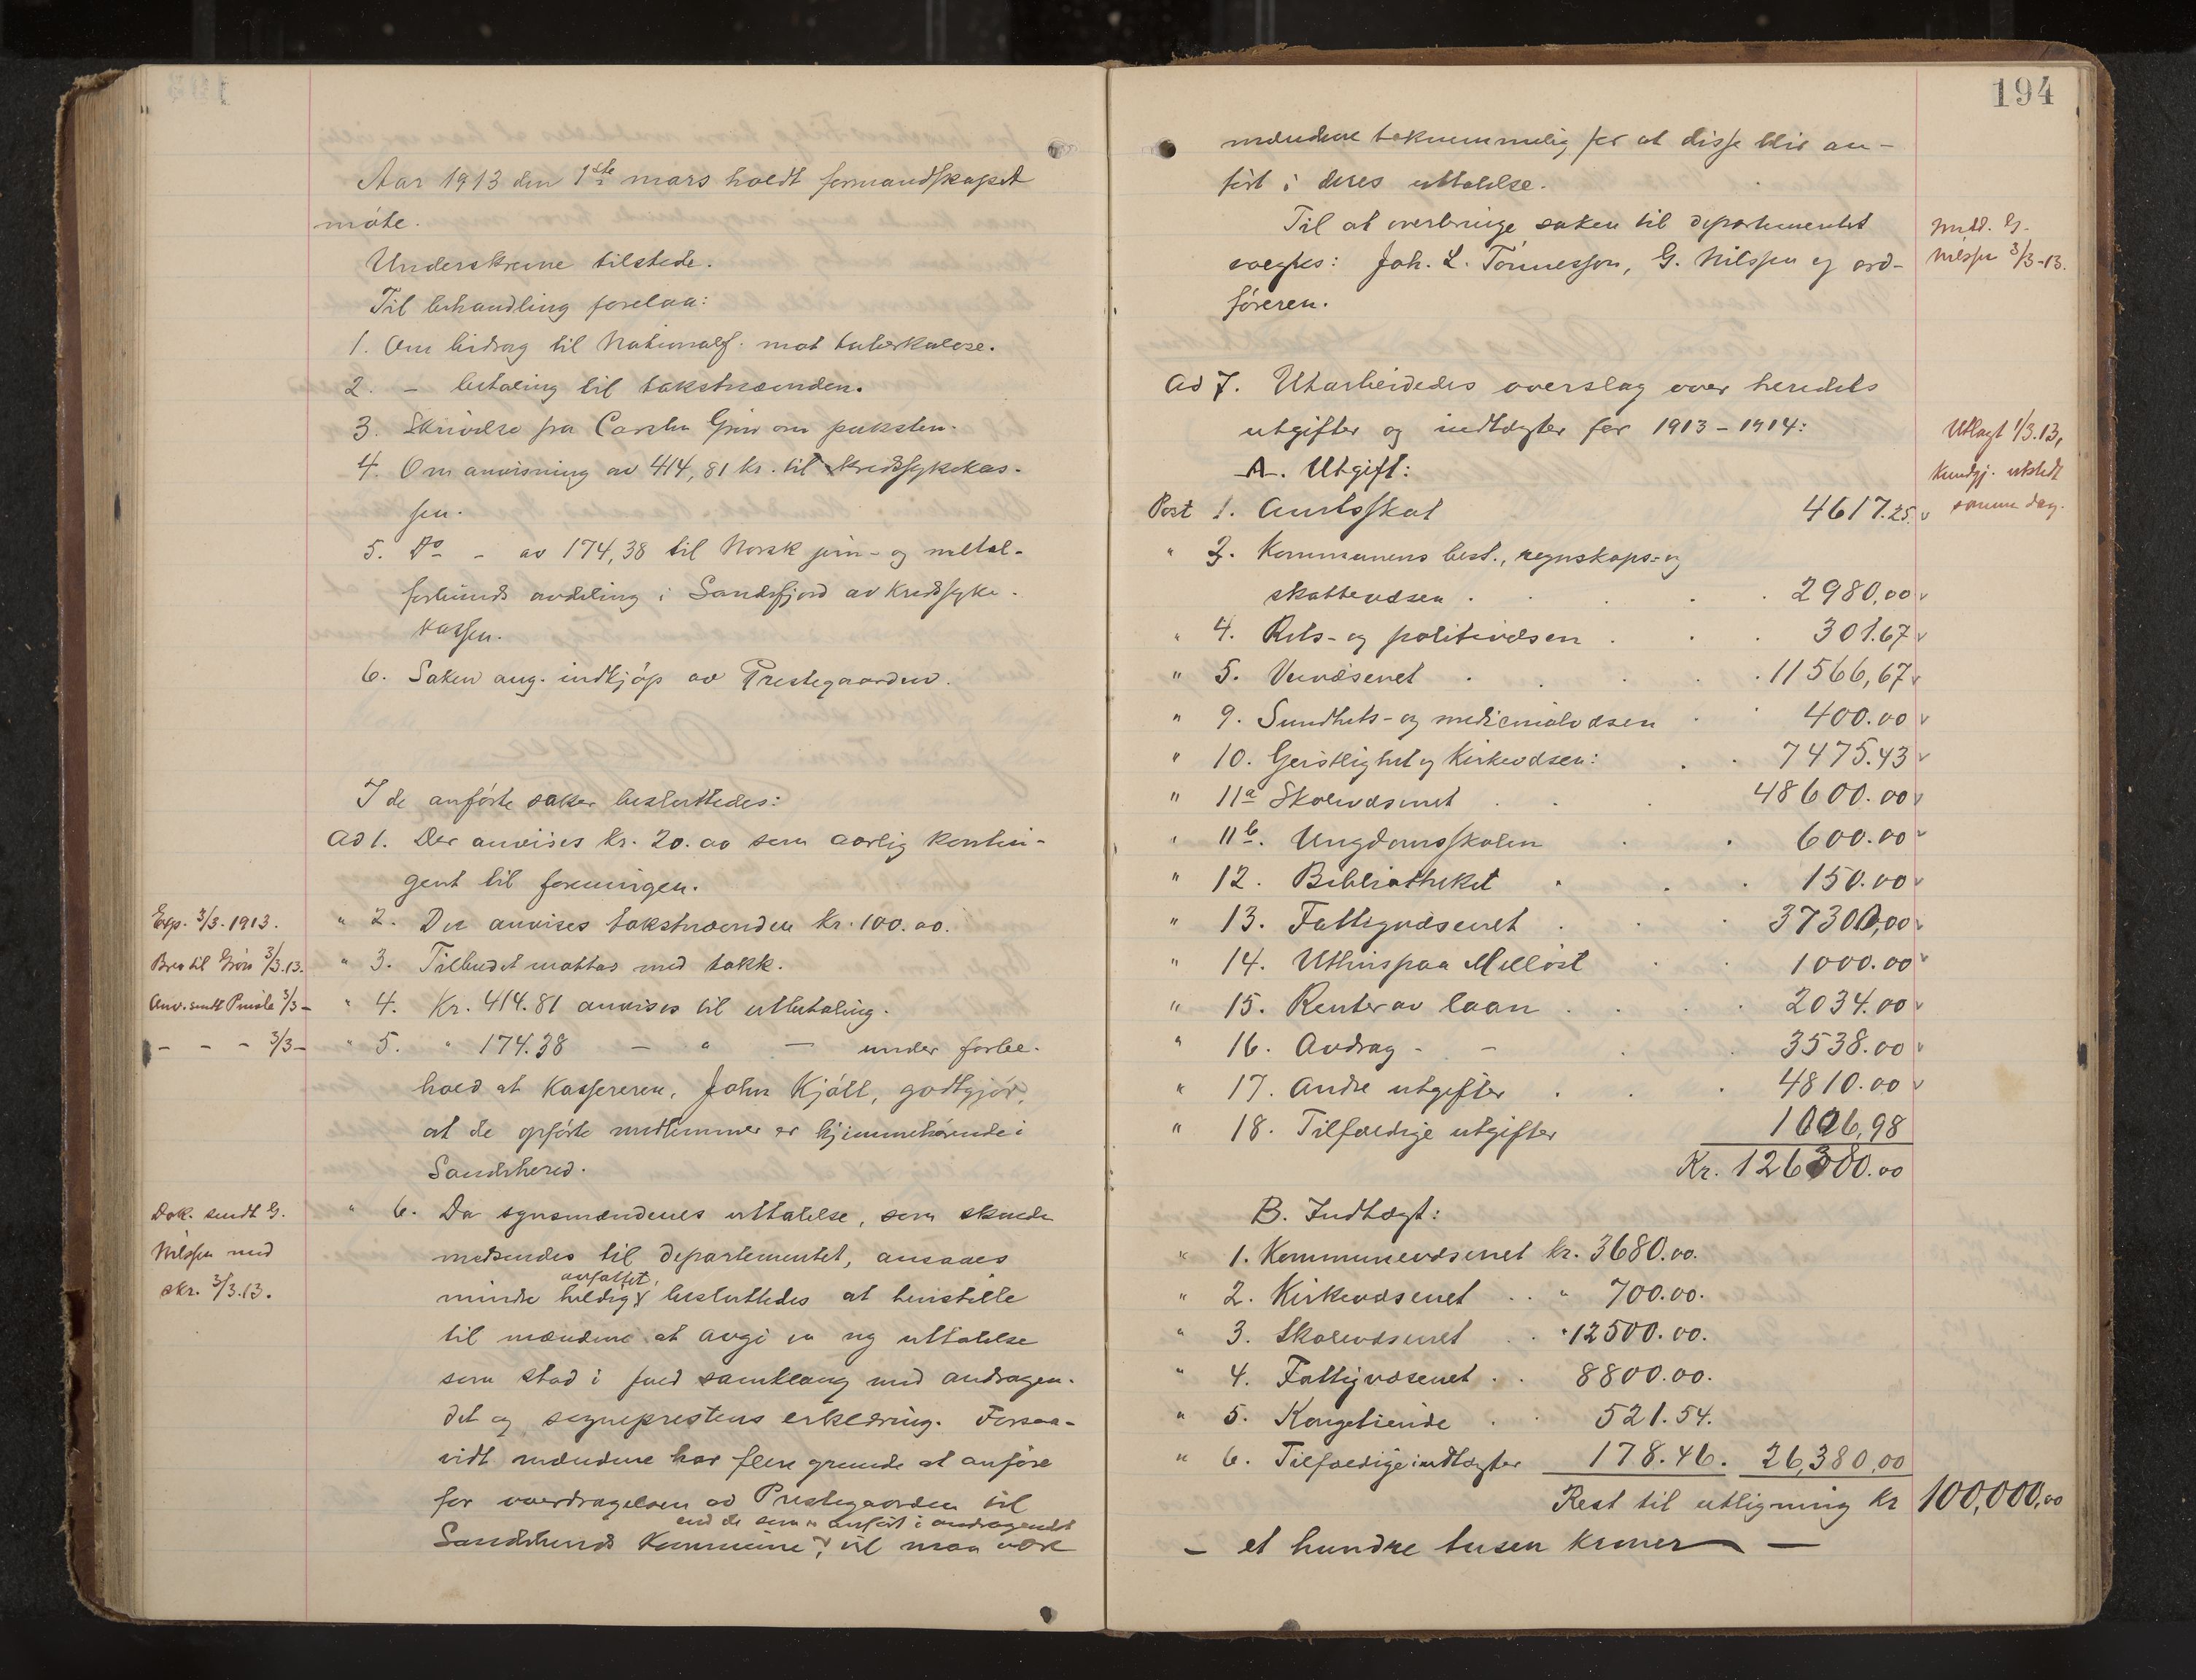 Aar 1913 den 1ste mars holdt formandskapet
møte.
Underskrevne tilstede.
Til behandling forelaa:
1. Om bidrag til Nationalf. mot tuberkulose.
2. - betaling til takstmænden.
3. Skrivelse fra Carsten Grøn om pukksten.
4. Om anvisning av 414,81 kr. til kredssykekas-
sen.
5. Do - av 174,38 til Norsk jern- og metal-
forbunds avdeling i Sandefjord av kredssyke-
kassen.
6. Saken ang. indkjøp av Prestegaarden.
I de anførte saker besluttedes:
Ad 1. Der anvises kr. 20.00 som aarlig kontin-
gent til foreningen.
Exp. 3/3.1913.
" 2. Der anvises takstmænden kr. 100.00.
Brev til Grøn 3/3.13.
" 3. Tilbudet mottas med takk.
Anv. sendt 3/3 -
" 4. Kr. 414.81 anvises til utbetaling.
- - - 3/3 -
" 5. " 174.38 - " - under forbe-
hold at kassereren, John Kjøll, godtgjør,
at de opførte medlemmer er hjemmehørende i
Sandeherred.
Dok. sendt G.
Nilssen med
skr. 3/3.13.
" 6. Da synsmændenes uttalelse, som skulde
medsendes til departementet, ansaaes
mindre heldig avfattet, besluttedes at henstille
til mændene at avgi en ny uttalelse
som stod i fuld samklang med andragen-
det og sogneprestens erklæring. Forsaa-
vidt mændene har flere grunde at anføre
for overdragelsen av Prestegaarden til
Sandeherreds kommune end de som er anført i andragendet, vil man være
194
mændene taknemmelig for at disse blir an-
ført i deres uttalelse.
Til at overbringe saken til departementet
valgtes: Joh. L. Tønnesson, G. Nilssen og ord-
føreren.
Medd. G.
Nilssen 3/3-13.
Ad 7. Utarbeidedes overslag over herredets
utgifter og indtægter for 1913-1914:
Utlagt 1/3.13,
kundgj. utstedt
samme dag.
A. Utgift:
Post 1. Amtsskat 4617.25
" 3. Kommunens best., regnskaps- og
skattevæsen . . . 2980,00
" 4. Rets- og politivæsen . . . 301.67
" 5. Veivæsenet . . . 11566,67
" 9. Sundhets- og medicinalvæsen . . 400.00
" 10. Geistlighet og Kirkevæsen: . . 7475.43
" 11a Skolevæsenet . . . 48600.00
" 11b. Ungdomsskolen . . 600.00
" 12. Bibliotheket . . . 150.00
" 13. Fattigvæsenet . . . 37300,00
" 14. Uthus paa Melløst . . 1000.00
" 15. Renter av laan . . . 2034.00
" 16. Avdrag - - . . 3538.00
" 17. Andre utgifter . . . 4810.00
" 18. Tilfældige utgifter 1006,98
Kr. 126380.00
B. Indtægt:
" 1. Kommunevæsenet kr. 3680.00.
" 2. Kirkevæsenet . . " 700.00.
" 3. Skolevæsenet . . " 12500.00.
" 4. Fattigvæsenet . . 8800.00.
" 5. Kongetiende . . 521.54.
" 6. Tilfældige indtægter 178.46. 26,380,00
Rest til utligning kr 100,000,00
- et hundre tusen kroner -